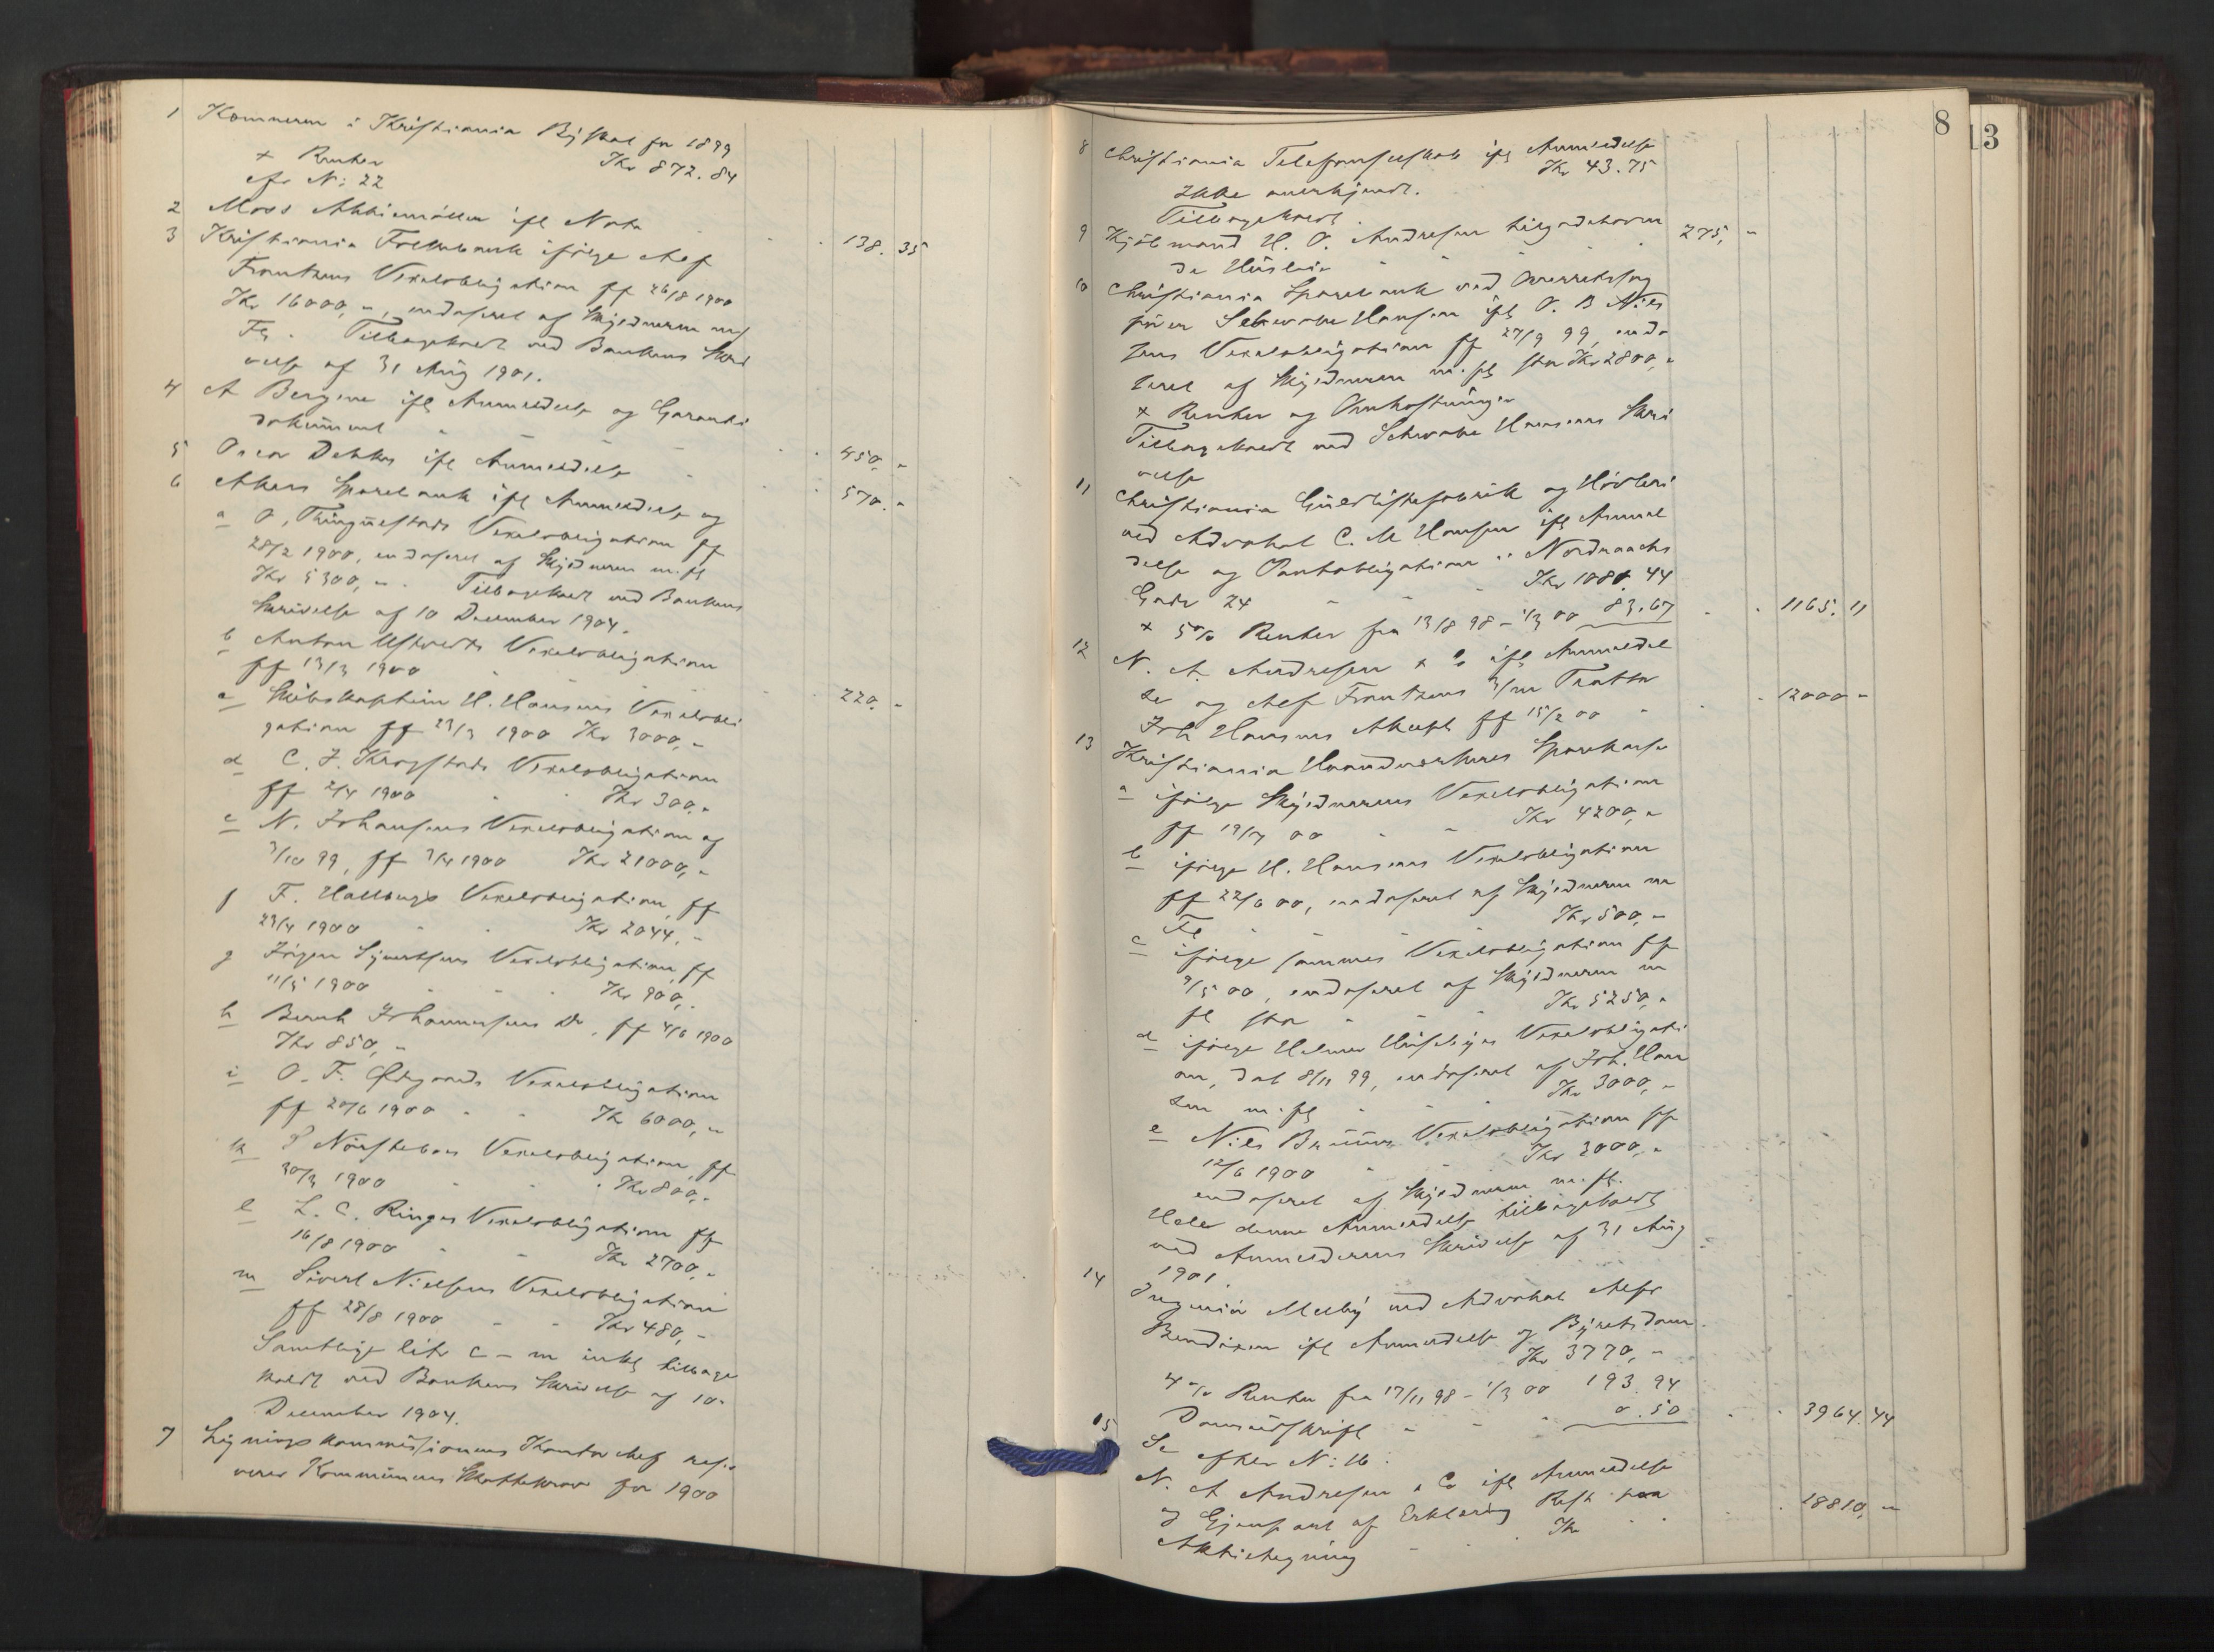 1 Kæmneren i Kristiania Byskat for 1899
+ Renter Kr 872.84
cfr N: 22
2 Moss Aktiemøller ifl Nota 138.35
3 Kristiania Folkebank ifølge Alf
Frantzens Vexelobligation ff 26/8 1900
Kr 16000,-, endosseret af Skyldneren m/
Fl. Tilbagekaldt ved Bankens Skri
velse af 31 Aug 1901.
4 A Bergene ifl Anmeldelse og Garanti
dokument 450,-
5 Oscar Dekke ifl Anmeldelse 570.-
6 Akers Sparebank ifl Anmeldelse og
a O. Vexelobligation ff
28/2 1900, endosseret af Skyldneren m. fl
Kr 5300,-. Tilbagekaldt ved Bankens
Skrivelse af 10 December 1904.
b Anton Vexelobligation
ff 13/3 1900 220,-
c Skibskaptein H. Hansens Vexelobli
gation ff 23/3 1900 Kr 3000,-
d C. J. Krogstads Vexelobligation
ff 2/4 1900 Kr 300,-
e N. Johansens Vexelobligation af
3/10 99, ff 3/4 1900 Kr 21000,-
f F. Hallbergs Vexelobligation, ff
23/4 1900 Kr 2044,-
g Jörgen Syvertsens Vexelobligation, ff
11/5 1900 Kr 900,-
h Bernh Johannesens Do, ff 4/6 1900
Kr 850,-
i O. F. Ødegaards Vexelobligation
ff 20/6 1900 Kr 6000,-
k P Nörstebøs Vexelobligation, ff
30/3 1900 Kr 800,-
l L. C. Ringes Vexelobligation ff
16/8 1900 Kr 2700,-
m Sivert Nielsens Vexelobligation
ff 28/8 1900 Kr 480,-
Samtlige litr c - m inkl tilbage
kaldt ved Bankens Skrivelse af 10.
December 1904.
7 Ligningskommissionens Kontorchef reser
verer Kommunens Skattekrav for 1900
8 13
8 Christiania Telefonselskab ifl Anmeldelse
Kr 43.75
Ikke anerkjendt.
Tilbagekaldt.
9 Kjøbmand H. O. Andresen tilgodehavende
de Husleie 275,-
10 Christiania Sparebank ved Overretssag
fører Schwabe Hansen ifl O. B Niel
sens Vexelobligation ff 27/9 99, endos
seret af Skyldneren m. fl stor Kr 2800,-
+ Renter og Omkostninger
Tilbagekaldt ved Schwabe Hansens Skri
velse
11 Christiania Guldlistefabrik og Høvleri
ved Advokat C. M Hansen ifl Anmel
delse og Pantobligation i Nordraachs
Gade 24 Kr 1081.44
+ 5% Renter fra 13/8 98 - 1/3 00 83.67 1165.11
12 N. A Andresen & Co ifl Anmeldel
se og Alf Frantzens 3/m Tratte
Joh Hansens Akcept ff 15/2 00 12000-
13 Kristiania Haandværkeres Sparekasse
a ifølge Skyldnerens Vexelobligation
ff 19/4 00 Kr 4200,-
b ifølge H. Hansens Vexelobligation
ff 22/6 00, endosseret af Skyldneren m
Fl Kr 500,-
c ifølge sammes Vexelobligation ff
9/5 00, endosseret af Skyldneren m
fl stor Kr 5250,-
d ifølge Helmer Vexelobligati
on, dat 8/11 99, endosseret af Joh. Han
sen m. fl Kr 3000,-
e Niels Bruuns Vexelobligation ff
12/6 1900 Kr 2000,-
endosseret af Skyldneren m. fl.
Hele denne Anmeldelse tilbagekaldt
ved Anmelderens Skrivelse af 31 Aug
1901.
14 Ingeniør Melby ved Advokat Alfr
Bendixen ifl Anmeldelse og Byretsdom
Kr 3770,-
4% Renter fra 17/11 98 - 1/3 00 193.94
Domsudskrift 0.50 3964.44
15 Se efter N: 16.
N. A Andresen & Co ifl Anmeldelse
og Gjenpart af Erklæring Rest paa
Aktietegning Kr 18810,-